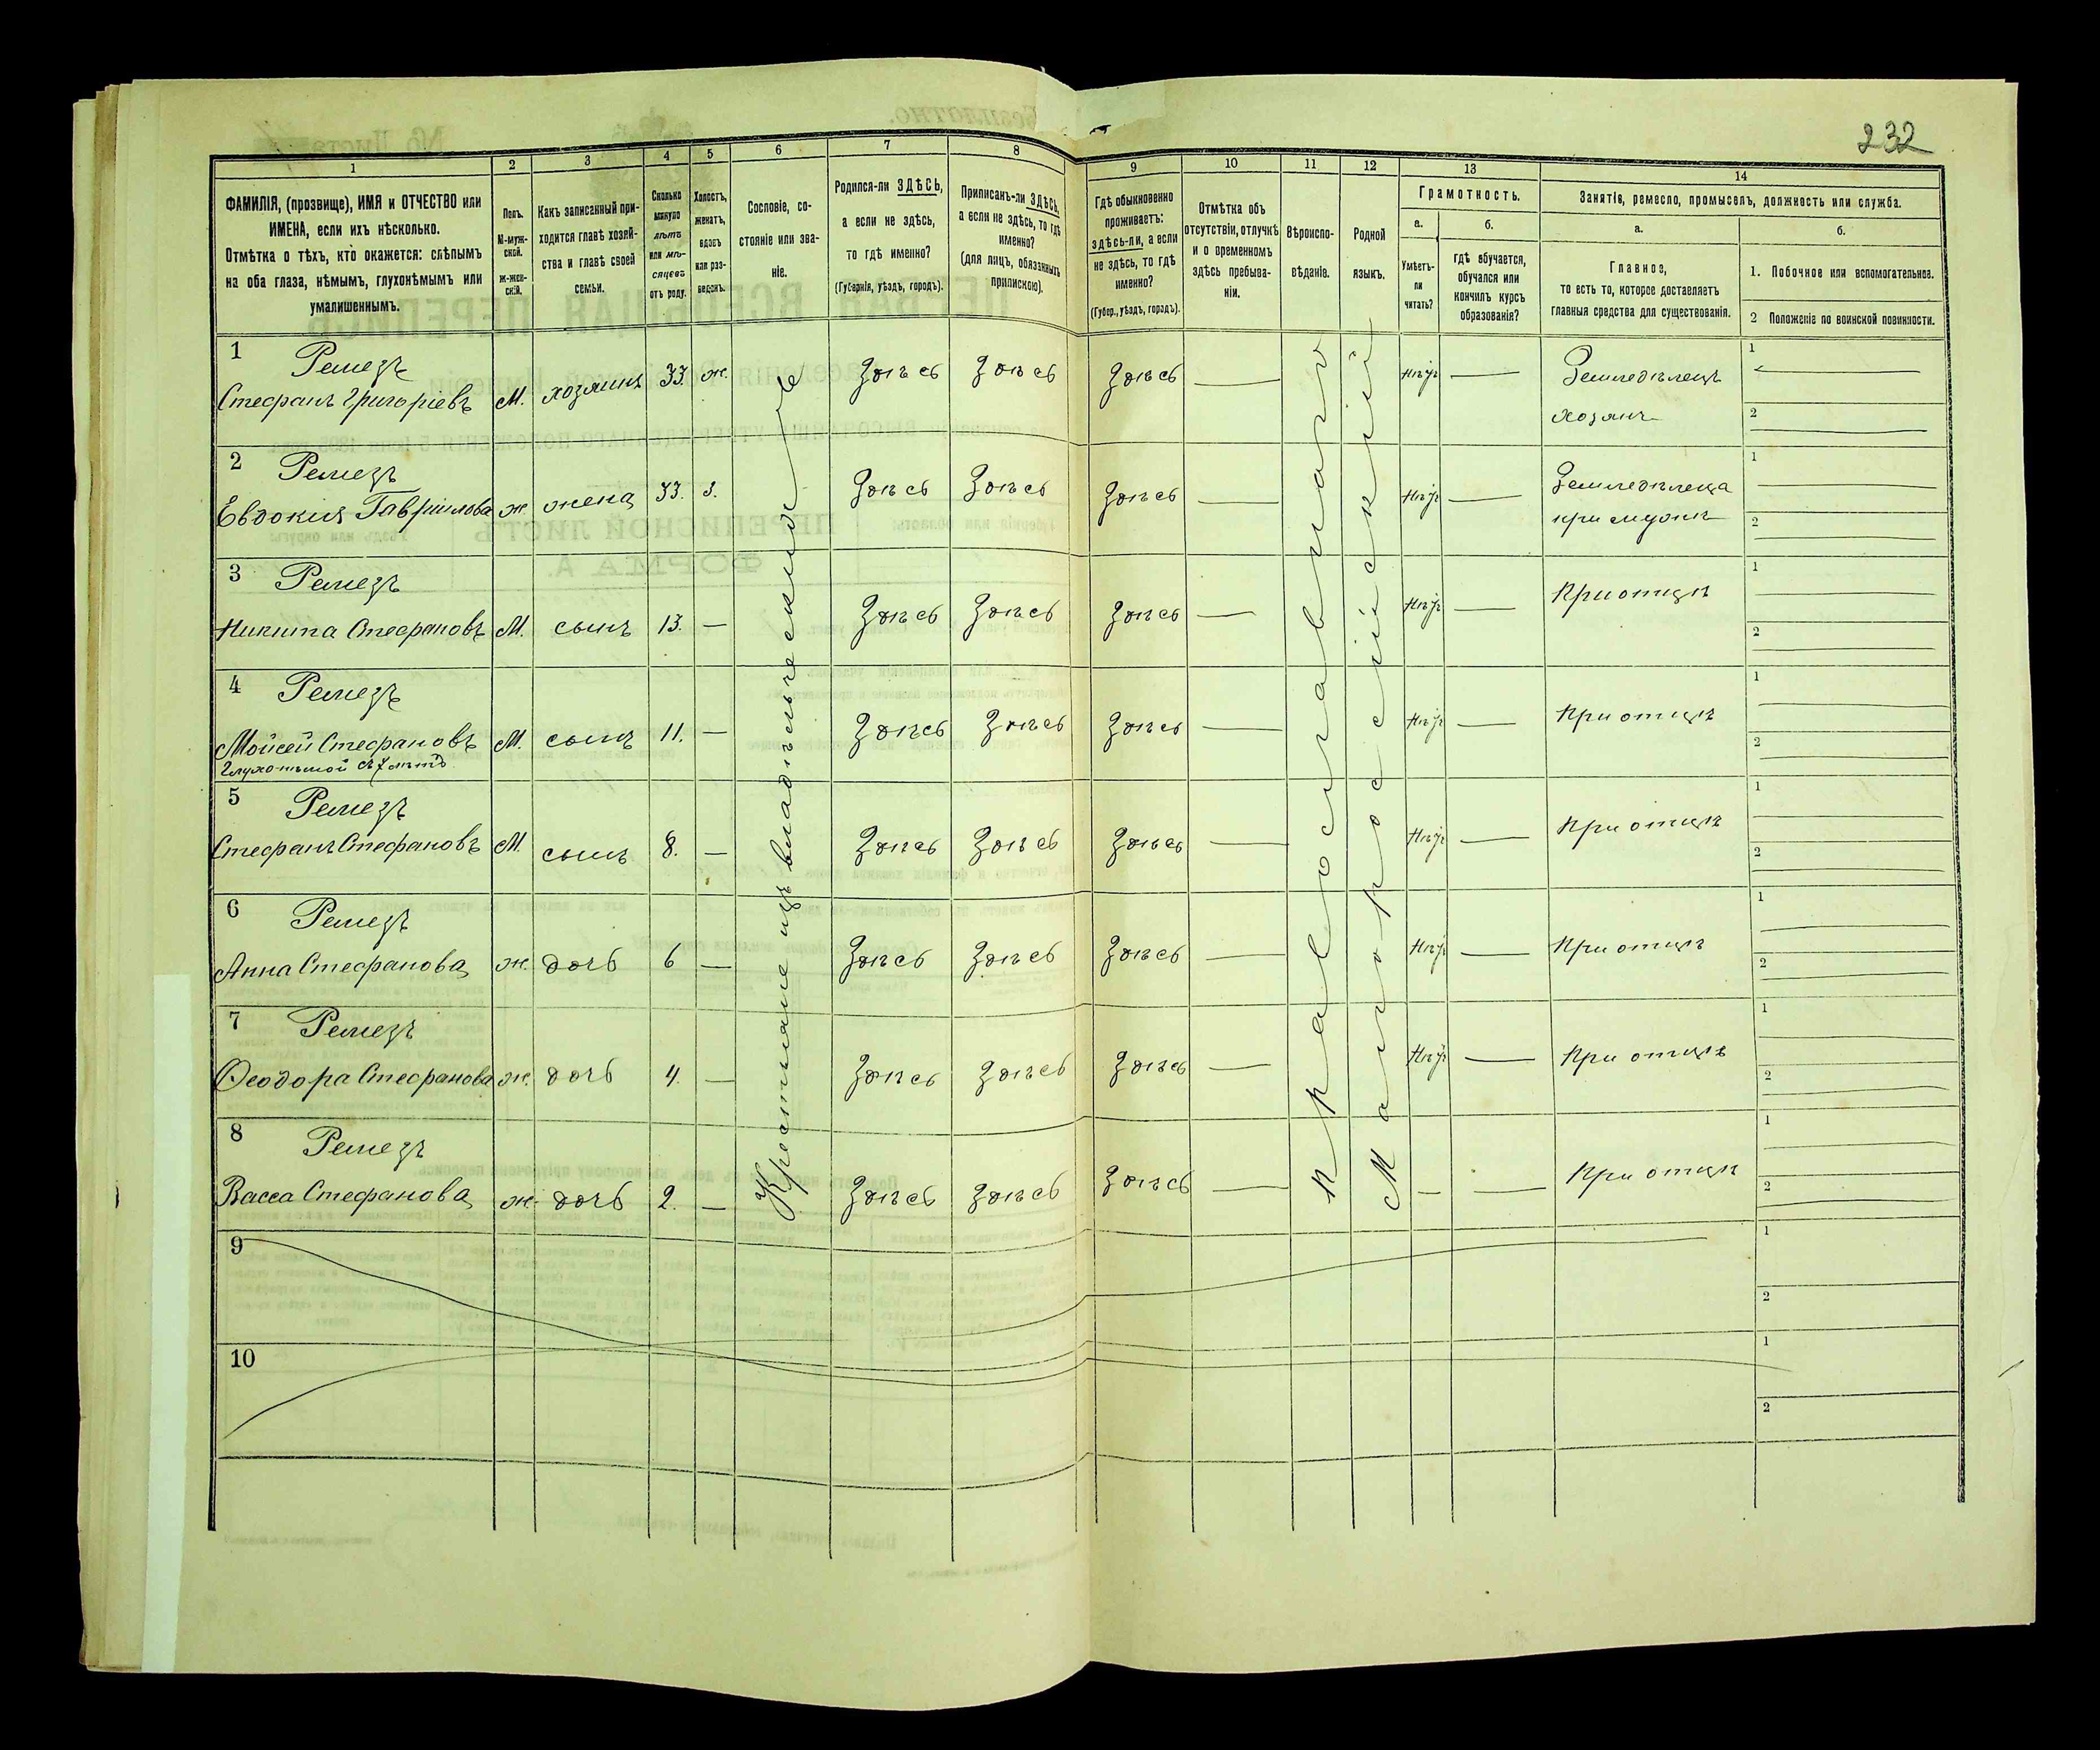 232
1 2 3 4 5 6 7 8 9 10 11 12 13 14
ФАМИЛІЯ, (прозвище), ИМЯ и ОТЧЕСТВО или
ИМЕНА, если ихъ нѣсколько.
Отмѣтка о тѣхъ, кто окажется: слѣпымъ
на оба глаза, нѣмымъ, глухонѣмымъ или
умалишеннымъ.
Полъ.
М-муж-
ской.
ж-жен-
скій.
Какъ записанный при-
ходится главѣ хозяй-
ства и главѣ своей
семьи.
Сколько
минуло
лѣтъ
или мѣ-
сяцевъ
отъ роду.
Холостъ,
женатъ,
вдовъ
или раз-
веденъ.
Сословіе, со-
стояніе или зва-
ніе.
Родился-ли ЗДѢСЬ,
а если не здѣсь,
то гдѣ именно?
(Губернія, уѣздъ, городъ).
Приписанъ-ли ЗДѢСЬ,
а если не здѣсь, то гдѣ
именно?
(для лицъ, обязанныхъ
припискою).
Гдѣ обыкновенно
проживаетъ:
здѣсь-ли, а если
не здѣсь, то гдѣ
именно?
(Губер., уѣздъ, городъ).
Отмѣтка объ
отсутствіи, отлучкѣ
и о временномъ
здѣсь пребыва-
ніи.
Вѣроиспо-
вѣданіе.
Родной
языкъ.
Грамотность.
а.
Умѣетъ-
ли
читать?
б.
гдѣ обучается,
обучался или
кончилъ курсъ
образованія?
Занятіе, ремесло, промыселъ, должность или служба.
а.
Главное,
то есть то, которое доставляетъ
главныя средства для существованія.
б.
1. Побочное или вспомогательное.
2 Положеніе по воинской повинности.
Крестьяне изъ владѣльческихъ
Православнаго
Малороссійскій
1 Ремезъ
Стефанъ Григоріевъ М. хозяинъ 33. ж. Здѣсь Здѣсь Здѣсь — нѣтъ — Земледѣлецъ
хозяинъ
1
2
2 Ремезъ
Евдокия Гавриилова ж жена 33. з. Здѣсь Здѣсь Здѣсь — нѣтъ — Земледѣлеца
при мужѣ
1
2
3 Ремезъ
Никита Стефановъ М. сынъ 13. — Здѣсь Здѣсь Здѣсь — нѣтъ — При отцѣ
1
2
4 Ремезъ
Мойсей Стефановъ М. сынъ 11. — Здѣсь Здѣсь Здѣсь — нѣтъ — При отцѣ
Глухо-нѣмой съ 7 лѣтъ
1
2
5 Ремезъ
Стефанъ Стефановъ М. сынъ 8. — Здѣсь Здѣсь Здѣсь — нѣтъ — При отцѣ
1
2
6 Ремезъ
Анна Стефанова ж. дочь 6 — Здѣсь Здѣсь Здѣсь — нѣтъ — При отцѣ
1
2
7 Ремезъ
Ѳеодора Стефанова ж. дочь 4. — Здѣсь Здѣсь Здѣсь — нѣтъ — При отцѣ
1
2
8 Ремезъ
Васса Стефанова ж. дочь 2. — Здѣсь Здѣсь Здѣсь — — — При отцѣ
1
2
9
1
2
10
1
2